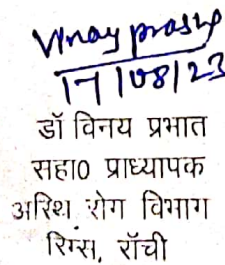 Vinay prasha
17/08/23
डॉ विनय प्रभात
सहा0 प्राध्यापक
अस्थि रोग विभाग
रिम्स, राँची